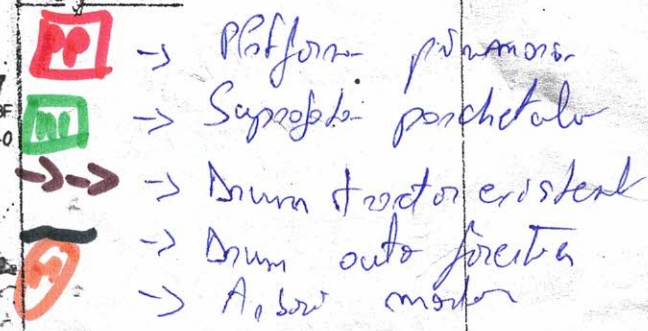 PP -> Platforma primara
-> Suprafata parchetului
-> Drum tractor existent
-> Drum auto forestier
-> Arbori